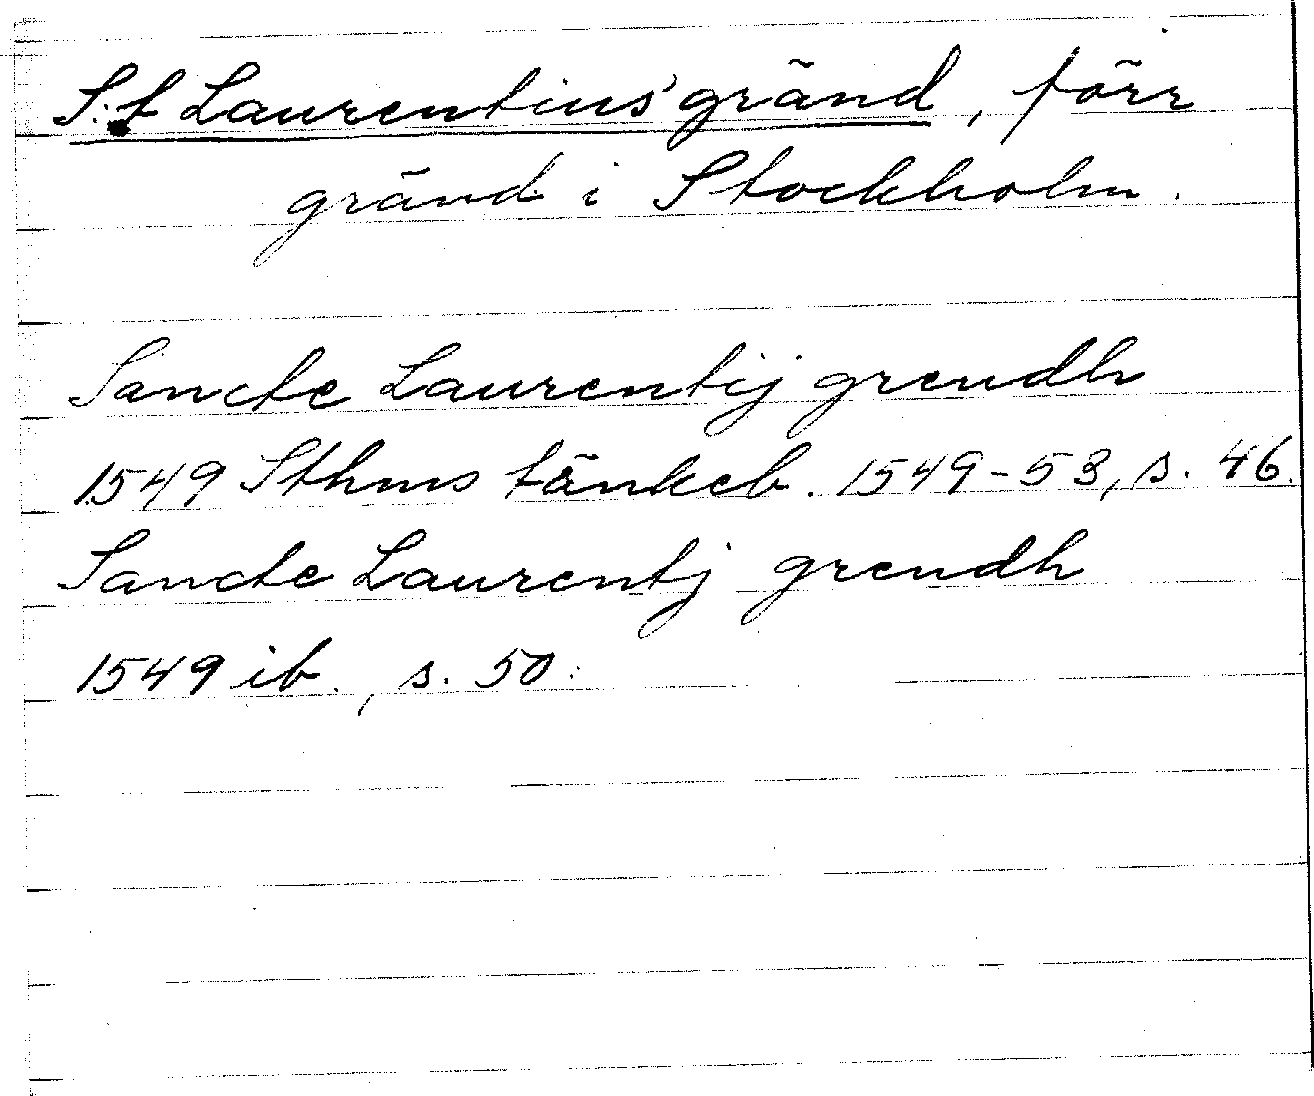 S:t Laurentius' gränd, förr
gränd i Stockholm.
Sancte Laurentij grendh
1549 Sthms tänkeb. 1549-53, s. 46.
Sancte Laurentj grendh
1549 ib., s. 50.